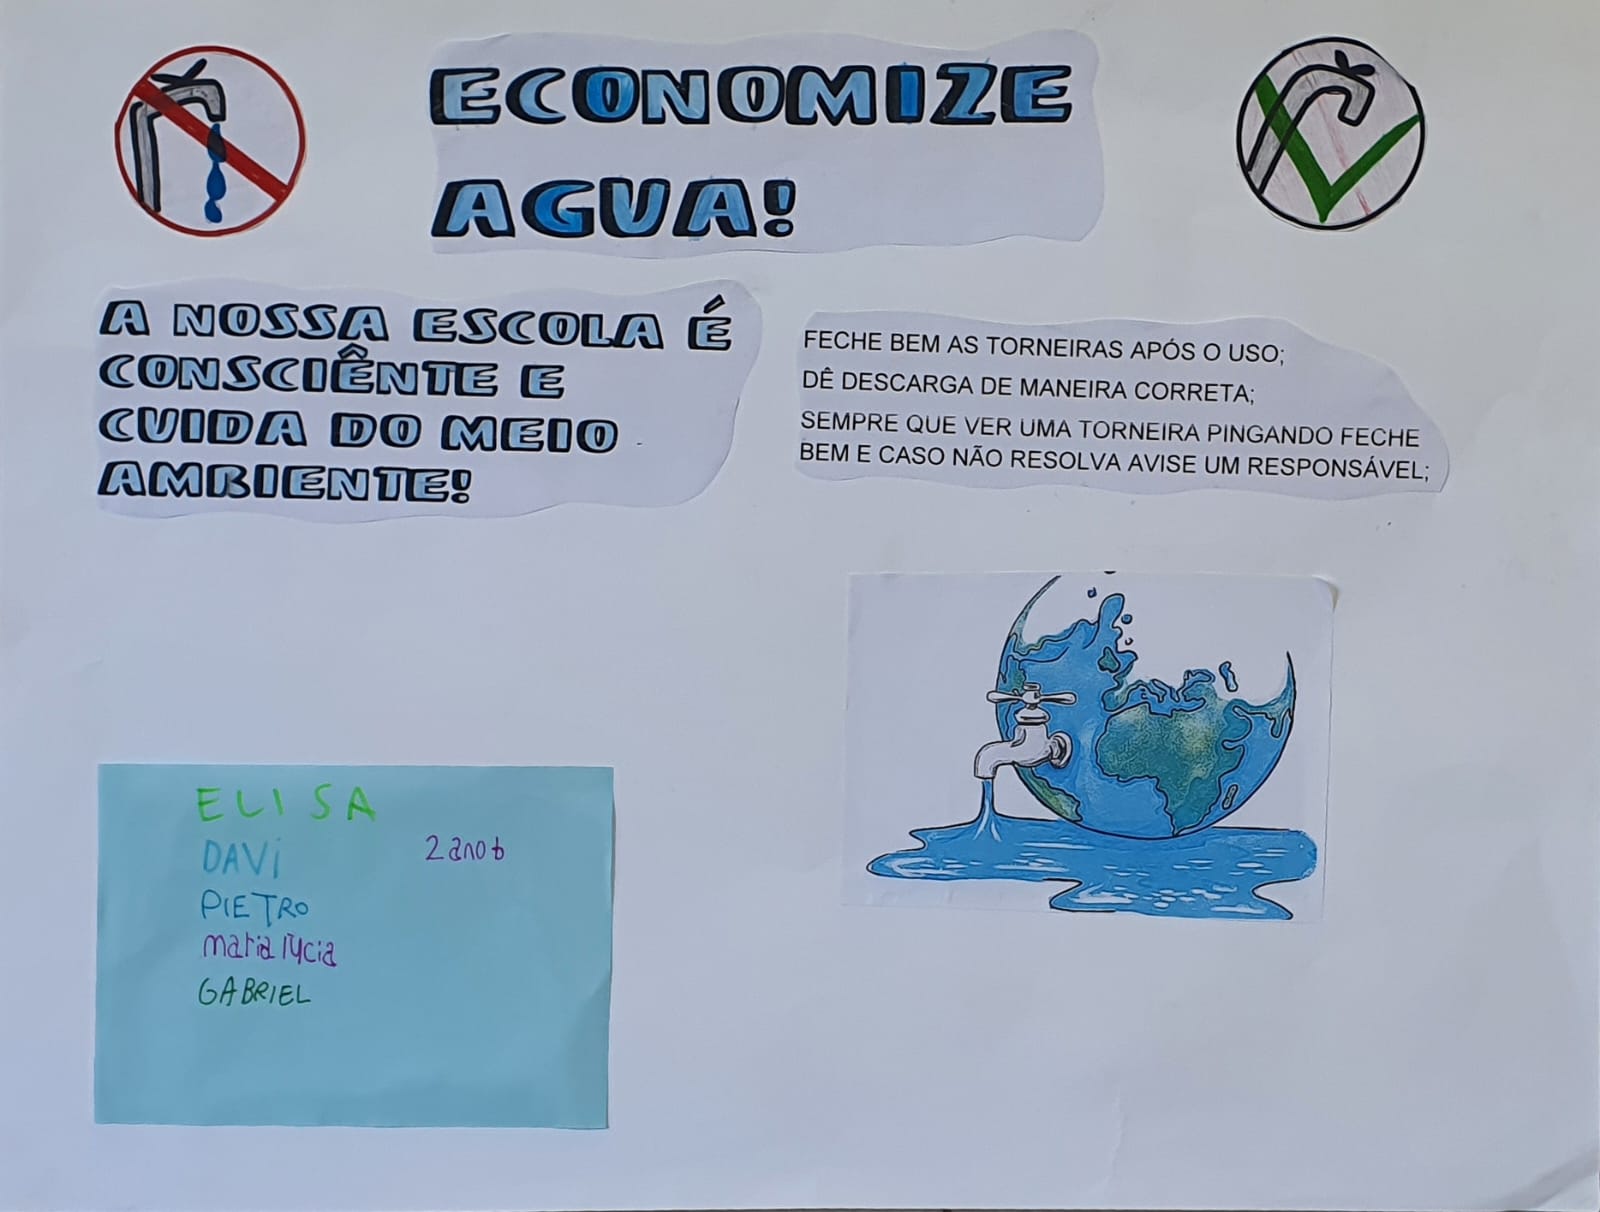 ECONOMIZE
AGUA!
A NOSSA ESCOLA É
CONSCIÊNTE E
CUIDA DO MEIO
AMBIENTE!
FECHE BEM AS TORNEIRAS APÓS O USO;
DÊ DESCARGA DE MANEIRA CORRETA;
SEMPRE QUE VER UMA TORNEIRA PINGANDO FECHE
BEM E CASO NÃO RESOLVA AVISE UM RESPONSÁVEL;
ELISA
DAVi
2 ano b
PIETRO
maria lycia
GABRIEL